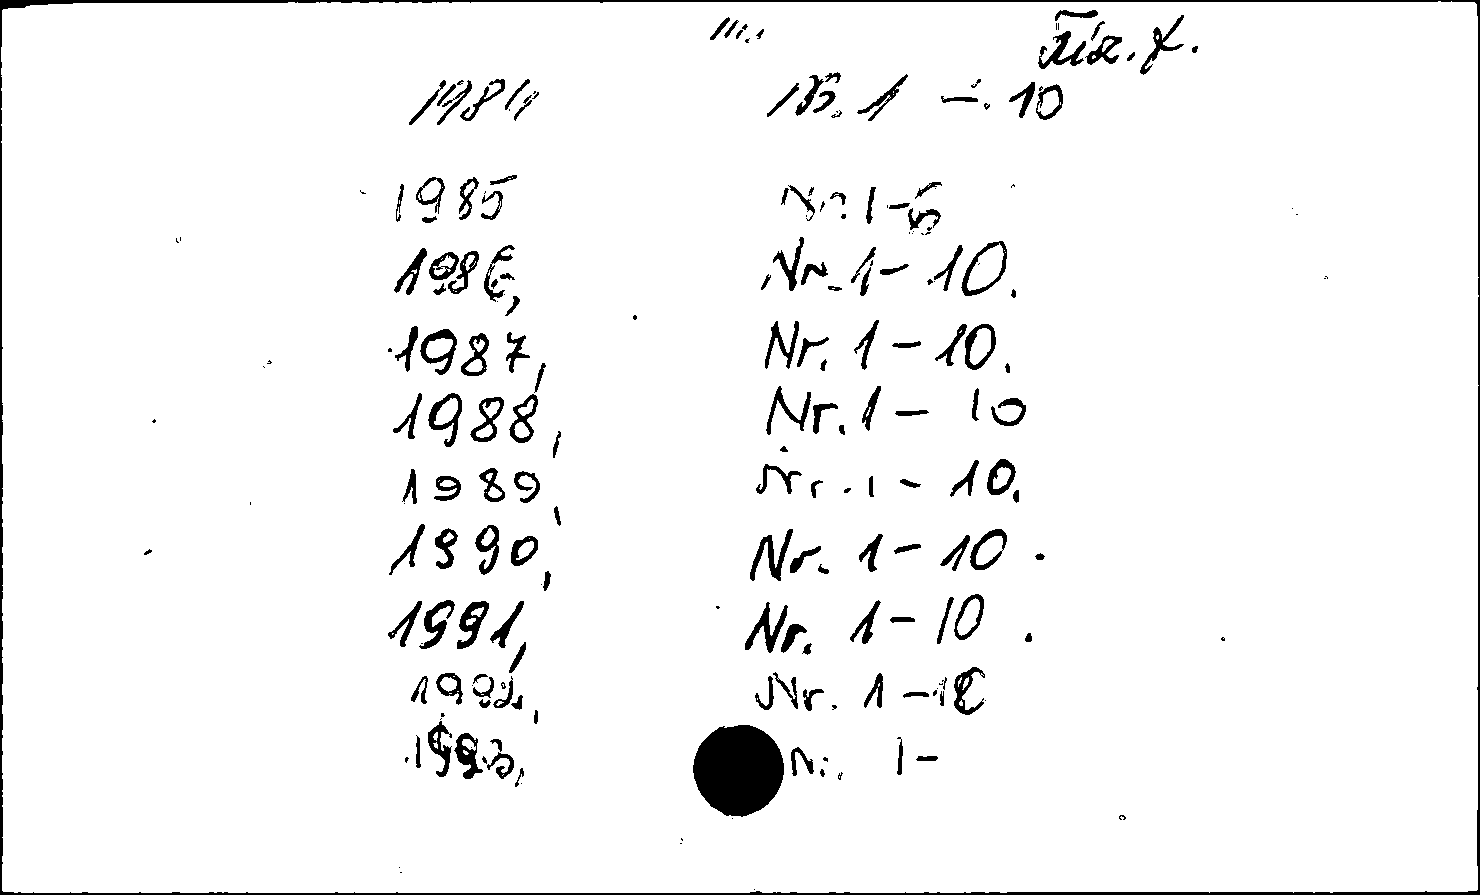 1984 Nr. 1 - 10
1985 Nr. 1-5
1986, Nr. 1- 10.
1987, Nr. 1- 10.
1988, Nr. 1 - 10
1989, Nr. 1 - 10.
1990, Nr. 1- 10.
1991, Nr. 1- 10.
1992, Nr. 1 -
1993, Nr. 1-